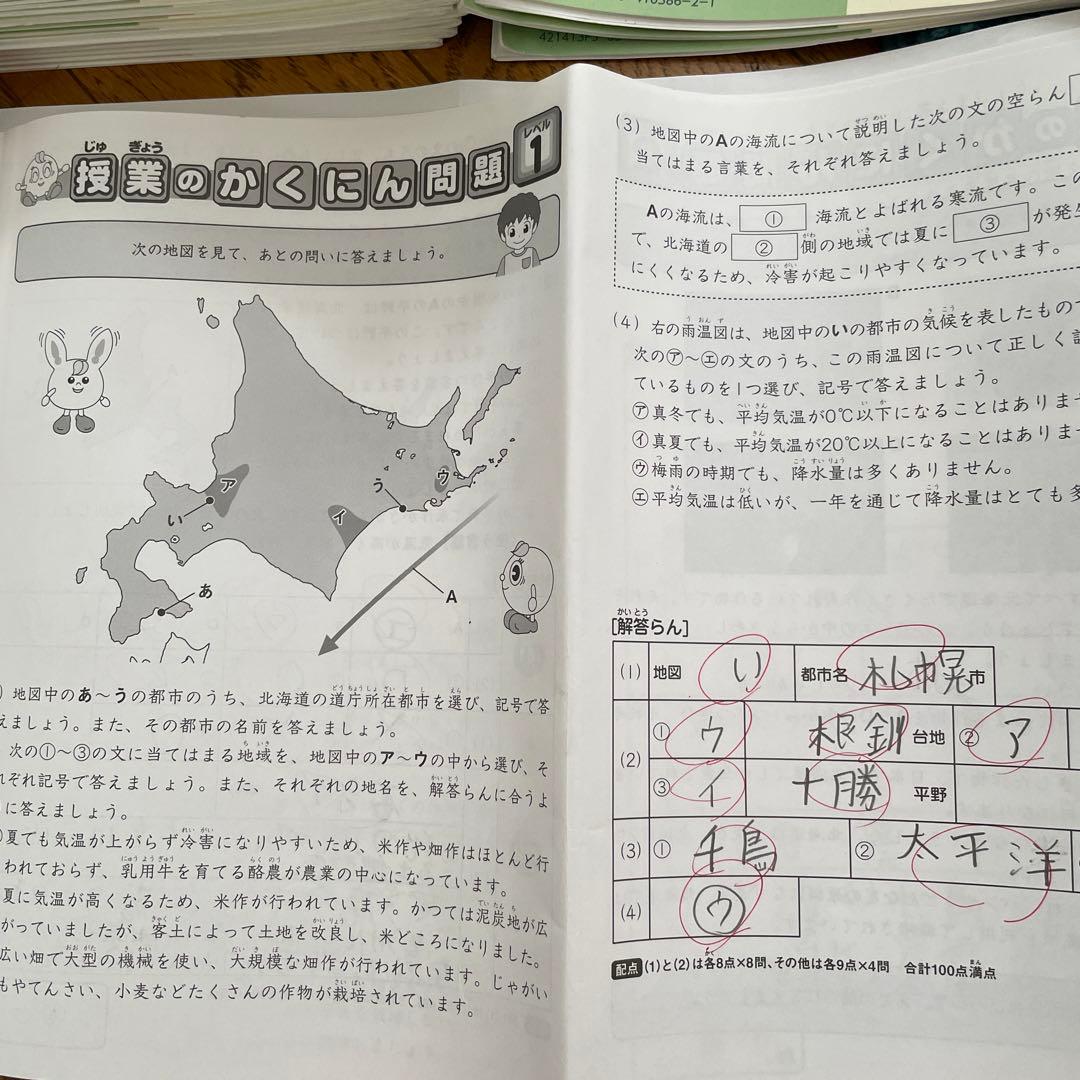 110386-2-1
421413F5
じゅ ぎょう
授業のかくにん問題
レベル
1
次の地図を見て、あとの問いに答えましょう。
ア
い
う
ウ
イ
あ
A
地図中のあ~うの都市のうち、北海道の道庁所在都市を選び、記号で答
えましょう。また、その都市の名前を答えましょう。
次の①~③の文に当てはまる地域を、地図中のア~ウの中から選び、そ
れぞれ記号で答えましょう。また、それぞれの地名を、解答らんに合うよ
に答えましょう。
夏でも気温が上がらず冷害になりやすいため、米作や畑作はほとんど行
われておらず、乳用牛を育てる酪農が農業の中心になっています。
夏に気温が高くなるため、米作が行われています。かつては泥炭地が広
がっていましたが、客土によって土地を改良し、米どころになりました。
広い畑で大型の機械を使い、大規模な畑作が行われています。じゃがい
もやてんさい、小麦などたくさんの作物が栽培されています。
(3) 地図中のAの海流について説明した次の文の空らん
当てはまる言葉を、それぞれ答えましょう。
Aの海流は、 ① 海流とよばれる寒流です。この
で、北海道の ② 側の地域では夏に ③ が発生
にくくなるため、冷害が起こりやすくなっています。
(4) 右の雨温図は、地図中のいの都市の気候を表したもので
次の㋐~㋓の文のうち、この雨温図について正しく
ているものを1つ選び、記号で答えましょう。
㋐真冬でも、平均気温が0℃以下になることはありませ
㋑真夏でも、平均気温が20℃以上になることはありませ
㋒梅雨の時期でも、降水量は多くありません。
㋓平均気温は低いが、一年を通じて降水量はとても多
かいとう
[解答らん]
(1) 地図 い 都市名 札幌 市
(2) ① ウ 根釧 台地 ② ア
③ イ 十勝 平野
(3) ① 千島 ② 太平洋
(4) ㋒
配点 (1)と(2)は各8点×8問、その他は各9点×4問 合計100点満点